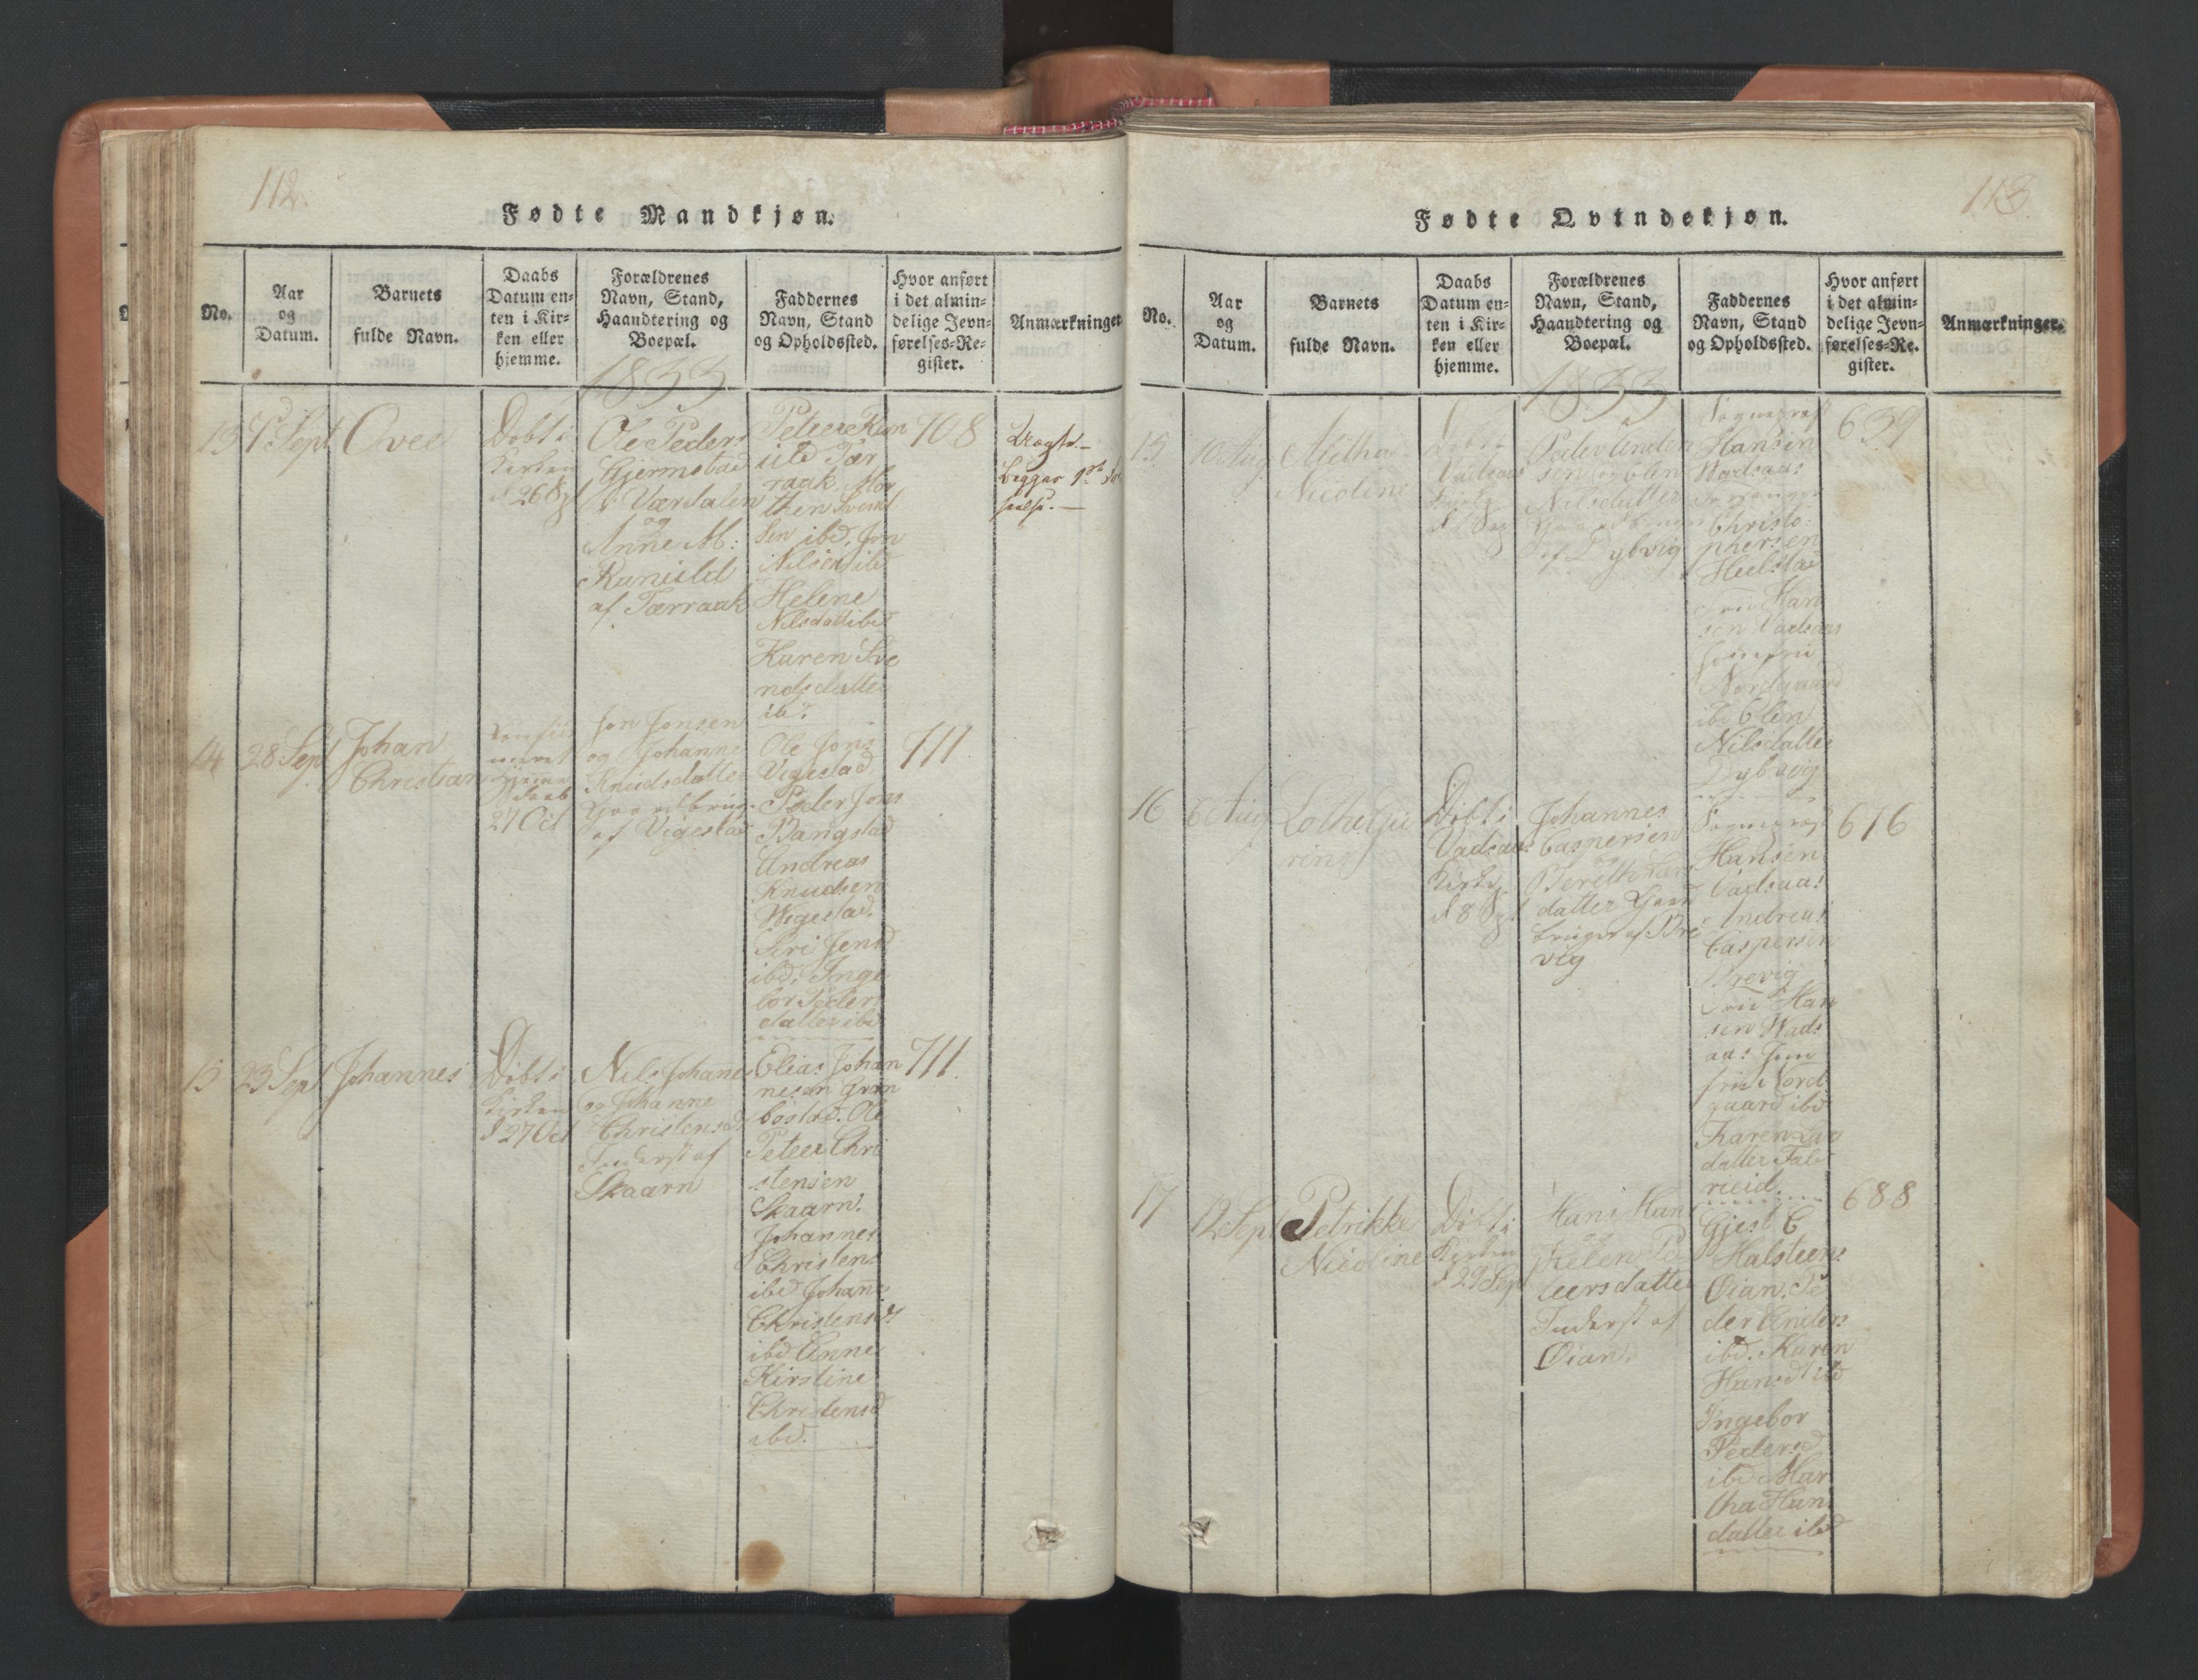 112.
Fødte Mandkjøn.
No.
Aar
og
Datum.
Barnets
fulde Navn.
Daabs
Datum en-
ten i Kir-
ken eller
hjemme.
Forældrenes
Navn, Stand,
Haandtering og
Boepæl.
Faddernes
Navn, Stand
og Opholdssted.
Hvor anført
i det almin-
delige Jevn-
førelses-Re-
gister.
Anmærkninger
1833
13
Sept
Ovee
Døbt i
Kirken
d 26
Ole Peders
Gjermstad
i Værdalen
og
Anne M:
Ranisld
af Tærraak
Peter
Tær
raak Mor
then Svend
sen ibd. Jon
Nilsen ibd
Helene
Nilsdatt ibd
Karen Sve
ndsdatter
ib.
708
Uægte.
Begges 1ste
14
28 Sept
Johan
Christian
27 Oct
Jon Jonsen
og Johanne
Knudsdatter
Gaardbrug.
af Vigestad
Ole Jons
Vigestad,
Peder Jons
Bangstad
Andreas
Knudsen
Wigestad.
Siri Jensd
ibd. Inge
bor Peders
datter ibd
711
15
23 Sept
Johannes
Døbt i
Kirken
d 27 Oct
Nils Johannes
og Johanne
Christensd
Inderst af
Skaarn
Elias Johan
nesen Grøn
bostad. Ole
Peteer Chri
stensen
Skaarn.
Johannes
Christens
ibd Johane
Christensd
ibd Anne
Kirstine
Christensd
ibd.
711.
113.
Fødte Qvindekjøn.
No.
Aar
og
Datum.
Barnets
fulde Navn.
Daabs
Datum en-
ten i Kir-
ken eller
hjemme.
Forældrenes
Navn, Stand,
Haandtering og
Boepæl.
Faddernes
Navn, Stand
og Opholdssted.
Hvor anført
i det almin-
delige Jevn-
førelses-Re-
gister.
Anmærkninger.
1833
15
10 Aug
Metha
Nicoline
Døbt i
Vadsaas
Kirke
Peder Ander
sen og Elen
Nilsdatter
Gaardbruger
af Dybvig
Sognepræst
Hansen
Wadsaas
Christo-
phersen
Heelstad
Frue Han
sen Vadsaas
Jomfru
Nordgaard
ibd Elen
Nilsdatter
Dybvig
639
16
6 Aug
Døbt i
Vadsaas
Kirke
d 8
Johannes
Caspersen
og
Bereth
datter Gaard
bruger af Bre
vig
Sognepræst
Hansen
Vadsaas
Andreas
Caspersen
Brevig
Frue Han
sen Wads
aas Jom
fru Nord
gaard ibd
Karen
datter
676
17
12 Sept
Petrikke
Nicoline
Døbt i
Kirken
d 29 Sept
Hans Hans
og
Helen Pe
teersdatter
Inderst af
Øian.
Gjest C
Halsteens
Øian. Pe
der Anders
ibd. Karen
Hansd ibd
Ingebor
Pedersd
ibd Mar
tha Hans
datter ibd
688